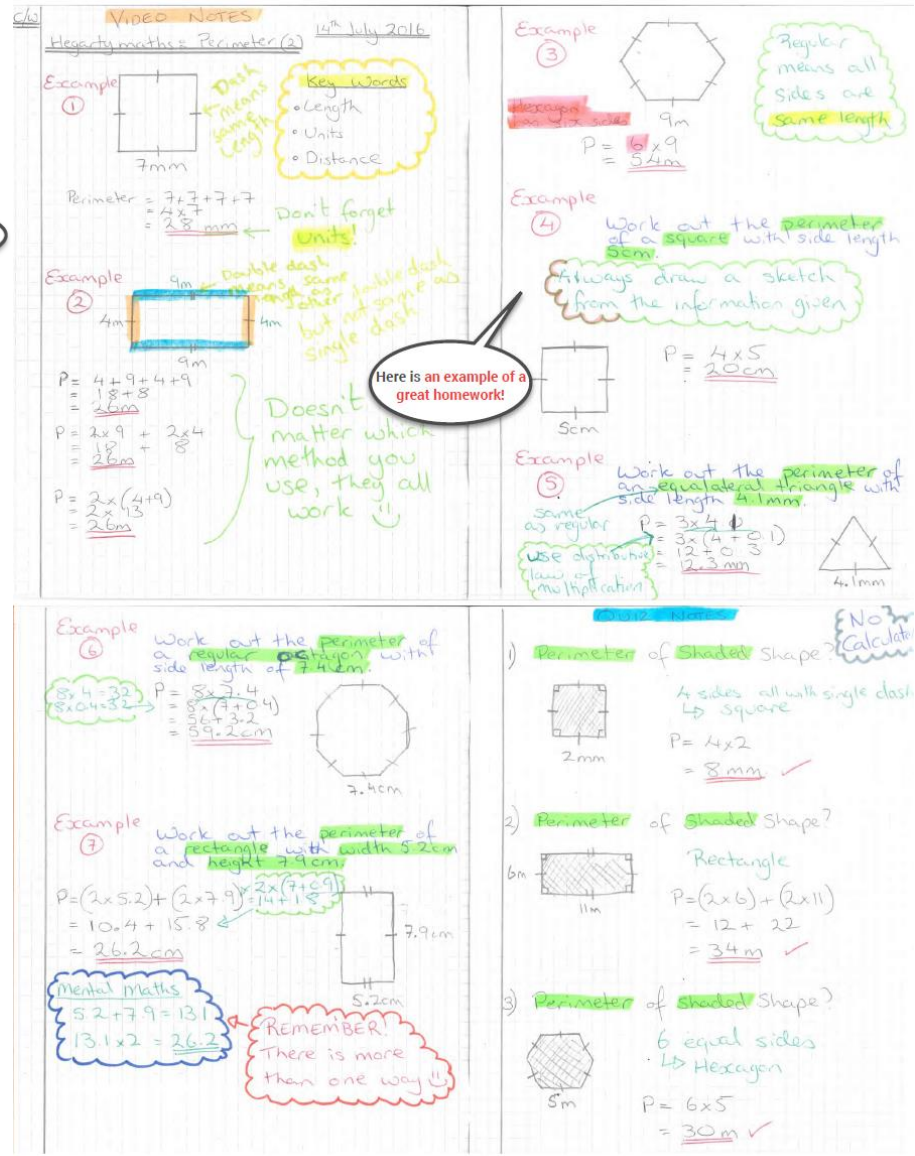 C/W
VIDEO NOTES
14th July 2016
Hegartymaths: Perimeter (2)
Example
1
Dash
means
same
length
7mm
Key Words
• Length
• Units
• Distance
Perimeter = 7+7+7+7
= 4x7
= 28 mm
Don't forget
units!
Example
2
9m
4m
4m
9m
Double dash
means same
length as
other double dash
but not same as
single dash
P = 4+9+4+9
= 18+8
= 26m
P = 2x9 + 2x4
= 18 + 8
= 26m
P = 2x(4+9)
= 2x13
= 26m
Doesn't
matter which
method you
use, they all
work
Example
3
Hexagon
has six sides
9m
P = 6x9
= 54m
Regular
means all
sides are
same length
Example
4
Work out the perimeter
of a square with side length
5cm.
Always draw a sketch
from the information given
Here is an example of a
great homework!
5cm
P = 4x5
= 20cm
Example
5
Work out the perimeter of
an equalateral triangle with
side length 4.1mm.
same
as regular
use distributive
law of
multiplication
P = 3x4.1
= 3x(4+0.1)
= 12+0.3
= 12.3mm
4.1mm
Example
6
Work out the perimeter of
a regular octagon with
side length of 7.4cm.
8x4=32
8x0.4=3.2
P = 8x7.4
= 8x(7+0.4)
= 56+3.2
= 59.2cm
7.4cm
Example
7
Work out the perimeter of
a rectangle with width 5.2cm
and height 7.9cm.
P=(2x5.2)+(2x7.9)
= 10.4+15.8
= 26.2cm
2x(7+0.9)
=14+1.8
7.9cm
5.2cm
Mental Maths
5.2+7.9=13.1
13.1x2 = 26.2
REMEMBER!
There is more
than one way
QUIZ NOTES
No
Calculator
1) Perimeter of Shaded Shape?
4 sides all with single dash
↳ square
2mm
P= 4x2
= 8mm ✓
2) Perimeter of Shaded Shape?
Rectangle
6m
11m
P=(2x6)+(2x11)
= 12+ 22
= 34m ✓
3) Perimeter of Shaded Shape?
6 equal sides
↳ Hexagon
5m
P= 6x5
= 30m ✓